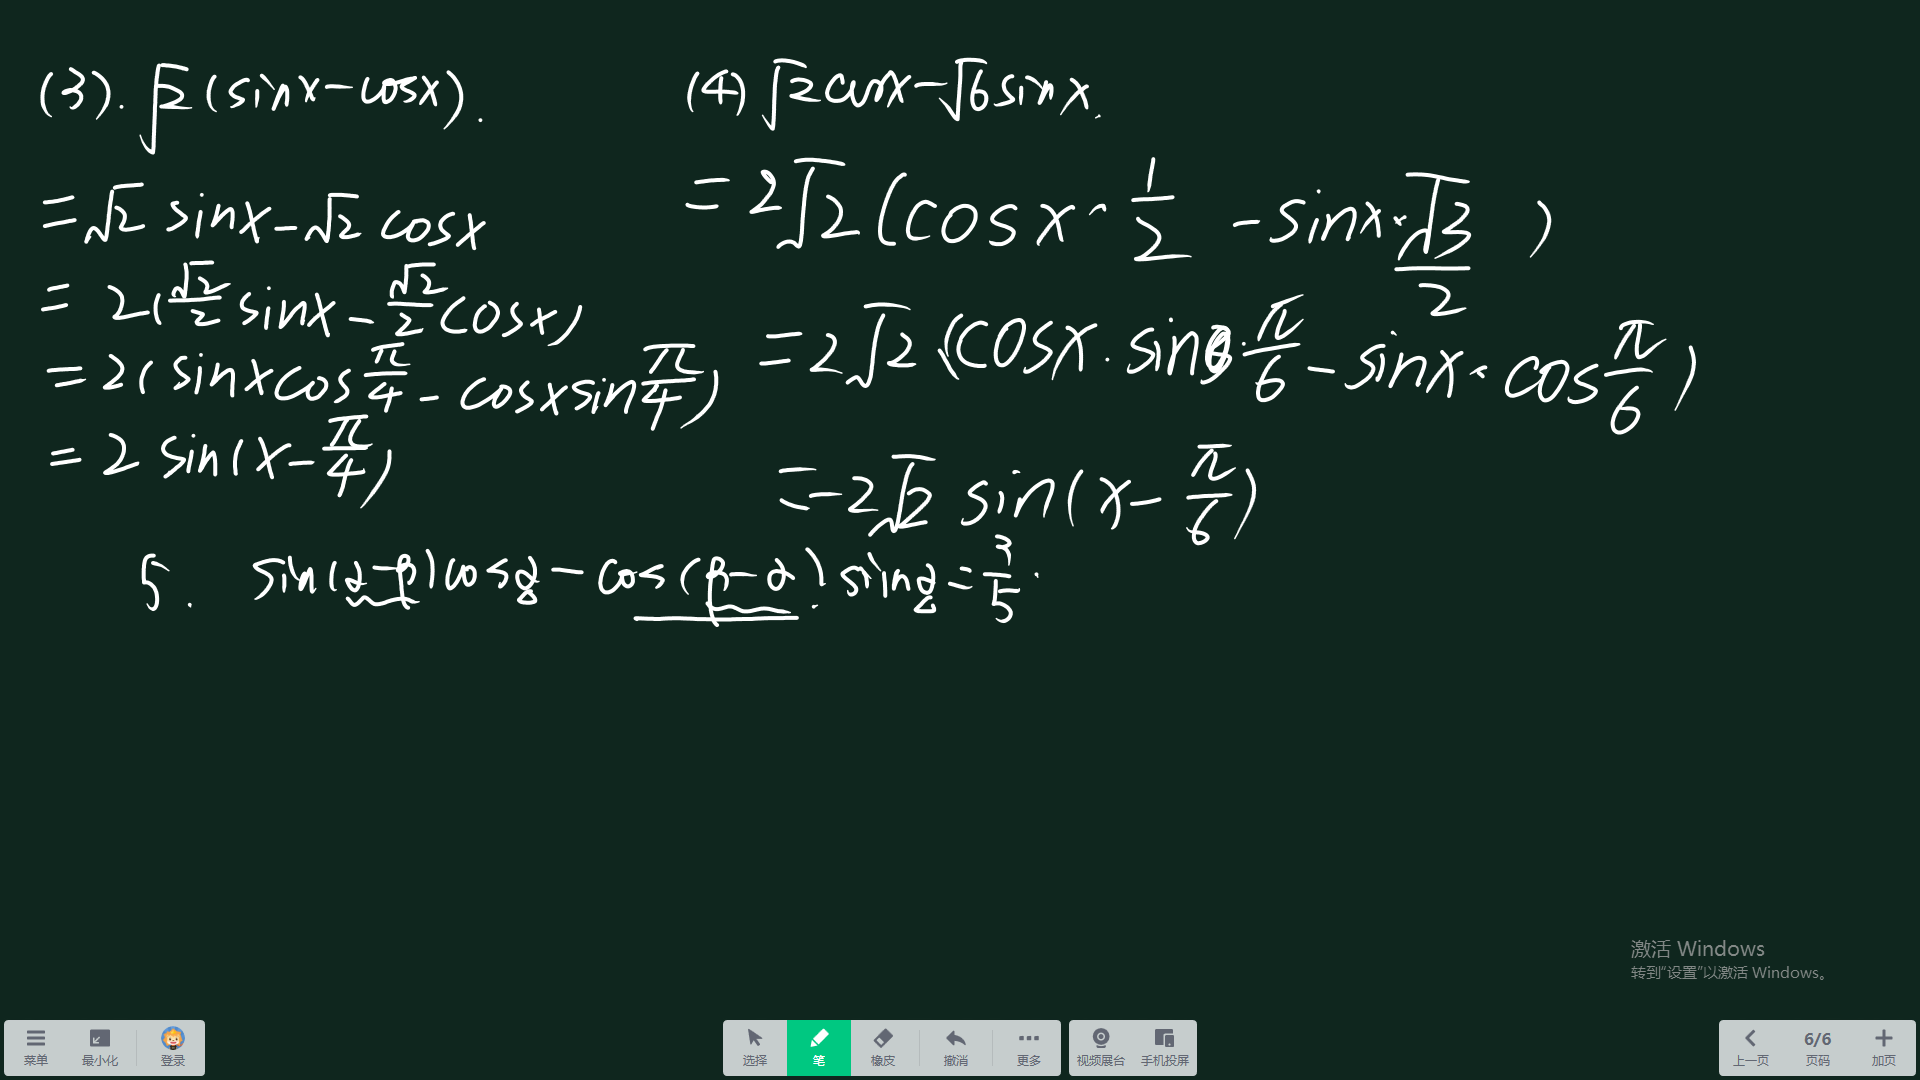 (3). √2 (sinx-cosx).
=√2 sinx-√2 cosx
= 2(√2/2 sinx - √2/2 cosx)
= 2( sinxcos π/4 - cosxsin π/4 )
= 2 sin(x- π/4 )
(4) √2cosx-√6sinx.
= 2√2 (cosx · 1/2 - sinx · √3/2 )
= 2√2 (cosx · sin π/6 - sinx · cos π/6 )
=-2√2 sin(x- π/6 )
5. sin(α-β)cosα-cos(β-α)·sinα= 3/5 .
激活 Windows
转到“设置”以激活 Windows。
菜单 最小化 登录 选择 笔 橡皮 撤消 更多 视频展台 手机投屏 上一页 6/6 页码 加页